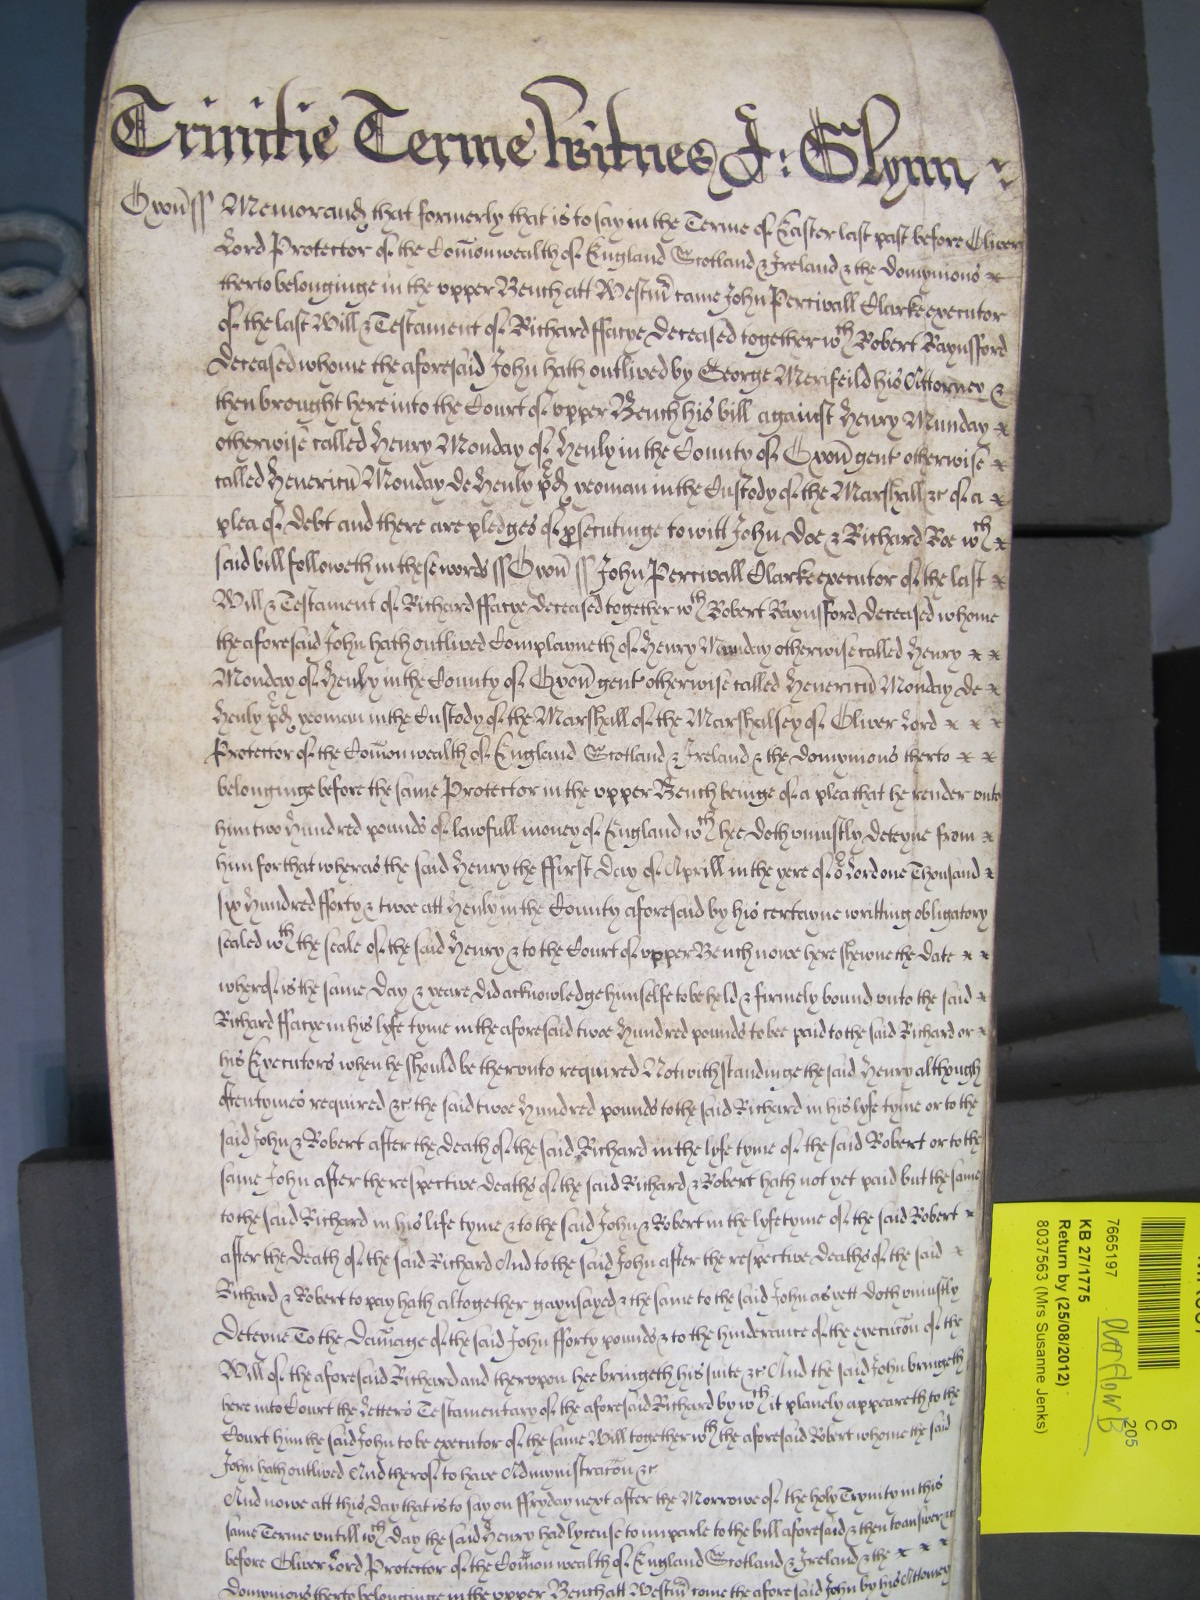 Trinitie Terme Witnes J: Glynn
Oxoñ ss Memorand that formerly that is to say in the Terme of Easter last past before Oliver
Lord Protector of the Com̄onwealth of England Scotland & Ireland & the domynions
therto belonginge in the vpper Bench att Westm̄ came John Percivall Clarke executor
of the last Will & Testament of Richard ffarye deceased together wth Robert Raynsford
deceased whome the aforesaid John hath outlived by George Merifeild his Attorney &
then brought here into the Court of vpper Bench his bill against Henry Munday
otherwise called Henry Monday of Henly in the County of Oxoñ gent otherwise
called Henericū Monday de Henly pd yeoman in the Custody of the Marshall &c of a
plea of debt and there are pledges of psecutinge to witt John Doe & Richard Roe wch
said bill followeth in these words ss Oxoñ ss John Percivall Clarke executor of the last
Will & Testament of Richard ffarye deceased together wth Robert Raynsford deceased whome
the aforesaid John hath outlived Complayneth of Henry Munday otherwise called Henry
Monday of Henly in the County of Oxoñ gent otherwise called Henericū Monday de
Henly pd yeoman in the Custody of the Marshall of the Marshalsey of Oliver Lord
Protector of the Com̄onwealth of England Scotland & Ireland & the domynions therto
belonginge before the same Protector in the vpper Bench beinge of a plea that he render unto
him two hundred pounds of lawfull money of England wch hee doth uniustly deteyne from
him for that wheras the said Henry the ffirst day of Aprill in the yere of or Lord one Thousand
six hundred fforty & twoe att Henly in the County aforesaid by his certayne writting obligatory
sealed wth the seale of the said Henry & to the Court of vpper Bench nowe here shewne the date
wherof is the same day & yeare did acknowledge himselfe to be held & firmely bound vnto the said
Richard ffarye in his lyfe tyme in the aforesaid twoe hundred pounds to bee paid to the said Richard or
his Executors when he should be thervnto required Notwithstandinge the said Henry although
oftentymes required &c the said twoe hundred pounds to the said Richard in his lyfe tyme or to the
said John & Robert after the death of the said Richard in the lyfe tyme of the said Robert or to the
same John after the respective deaths of the said Richard & Robert hath not yet paid but the same
to the said Richard in his life tyme & to the said John & Robert in the lyfe tyme of the said Robert
after the death of the said Richard And to the said John after the respective deaths of the said
Richard & Robert to pay hath altogether gaynsayed & the same to the said John as yett doth uniustly
deteyne To the dam̄age of the said John fforty pounds & to the hinderance of the execucōn of the
Will of the aforesaid Richard and thervpon hee bringeth his suite &c And the said John bringeth
here into Court the Letters Testamentary of the aforesaid Richard by wch it planely appeareth to the
Court him the said John to be executor of the same Will together wth the aforesaid Robert whome the said
John hath outlived And therof to have Admynistracōn &c
And nowe att this day that is to say on ffryday next after the Morrowe of the holy Trynity in this
same Terme vntill wch day the said Henry had lycense to imparle to the bill aforesaid & then to answer &c
before Oliver Lord Protector of the Com̄onwealth of England Scotland & Ireland & the
domynions therto belonginge in the vpper Bench att Westm̄ come the aforesaid John by his Attorney
6
C
205
7665197
KB 27/1775
Return by (25/08/2012)
8037563 (Mrs Susanne Jenks)